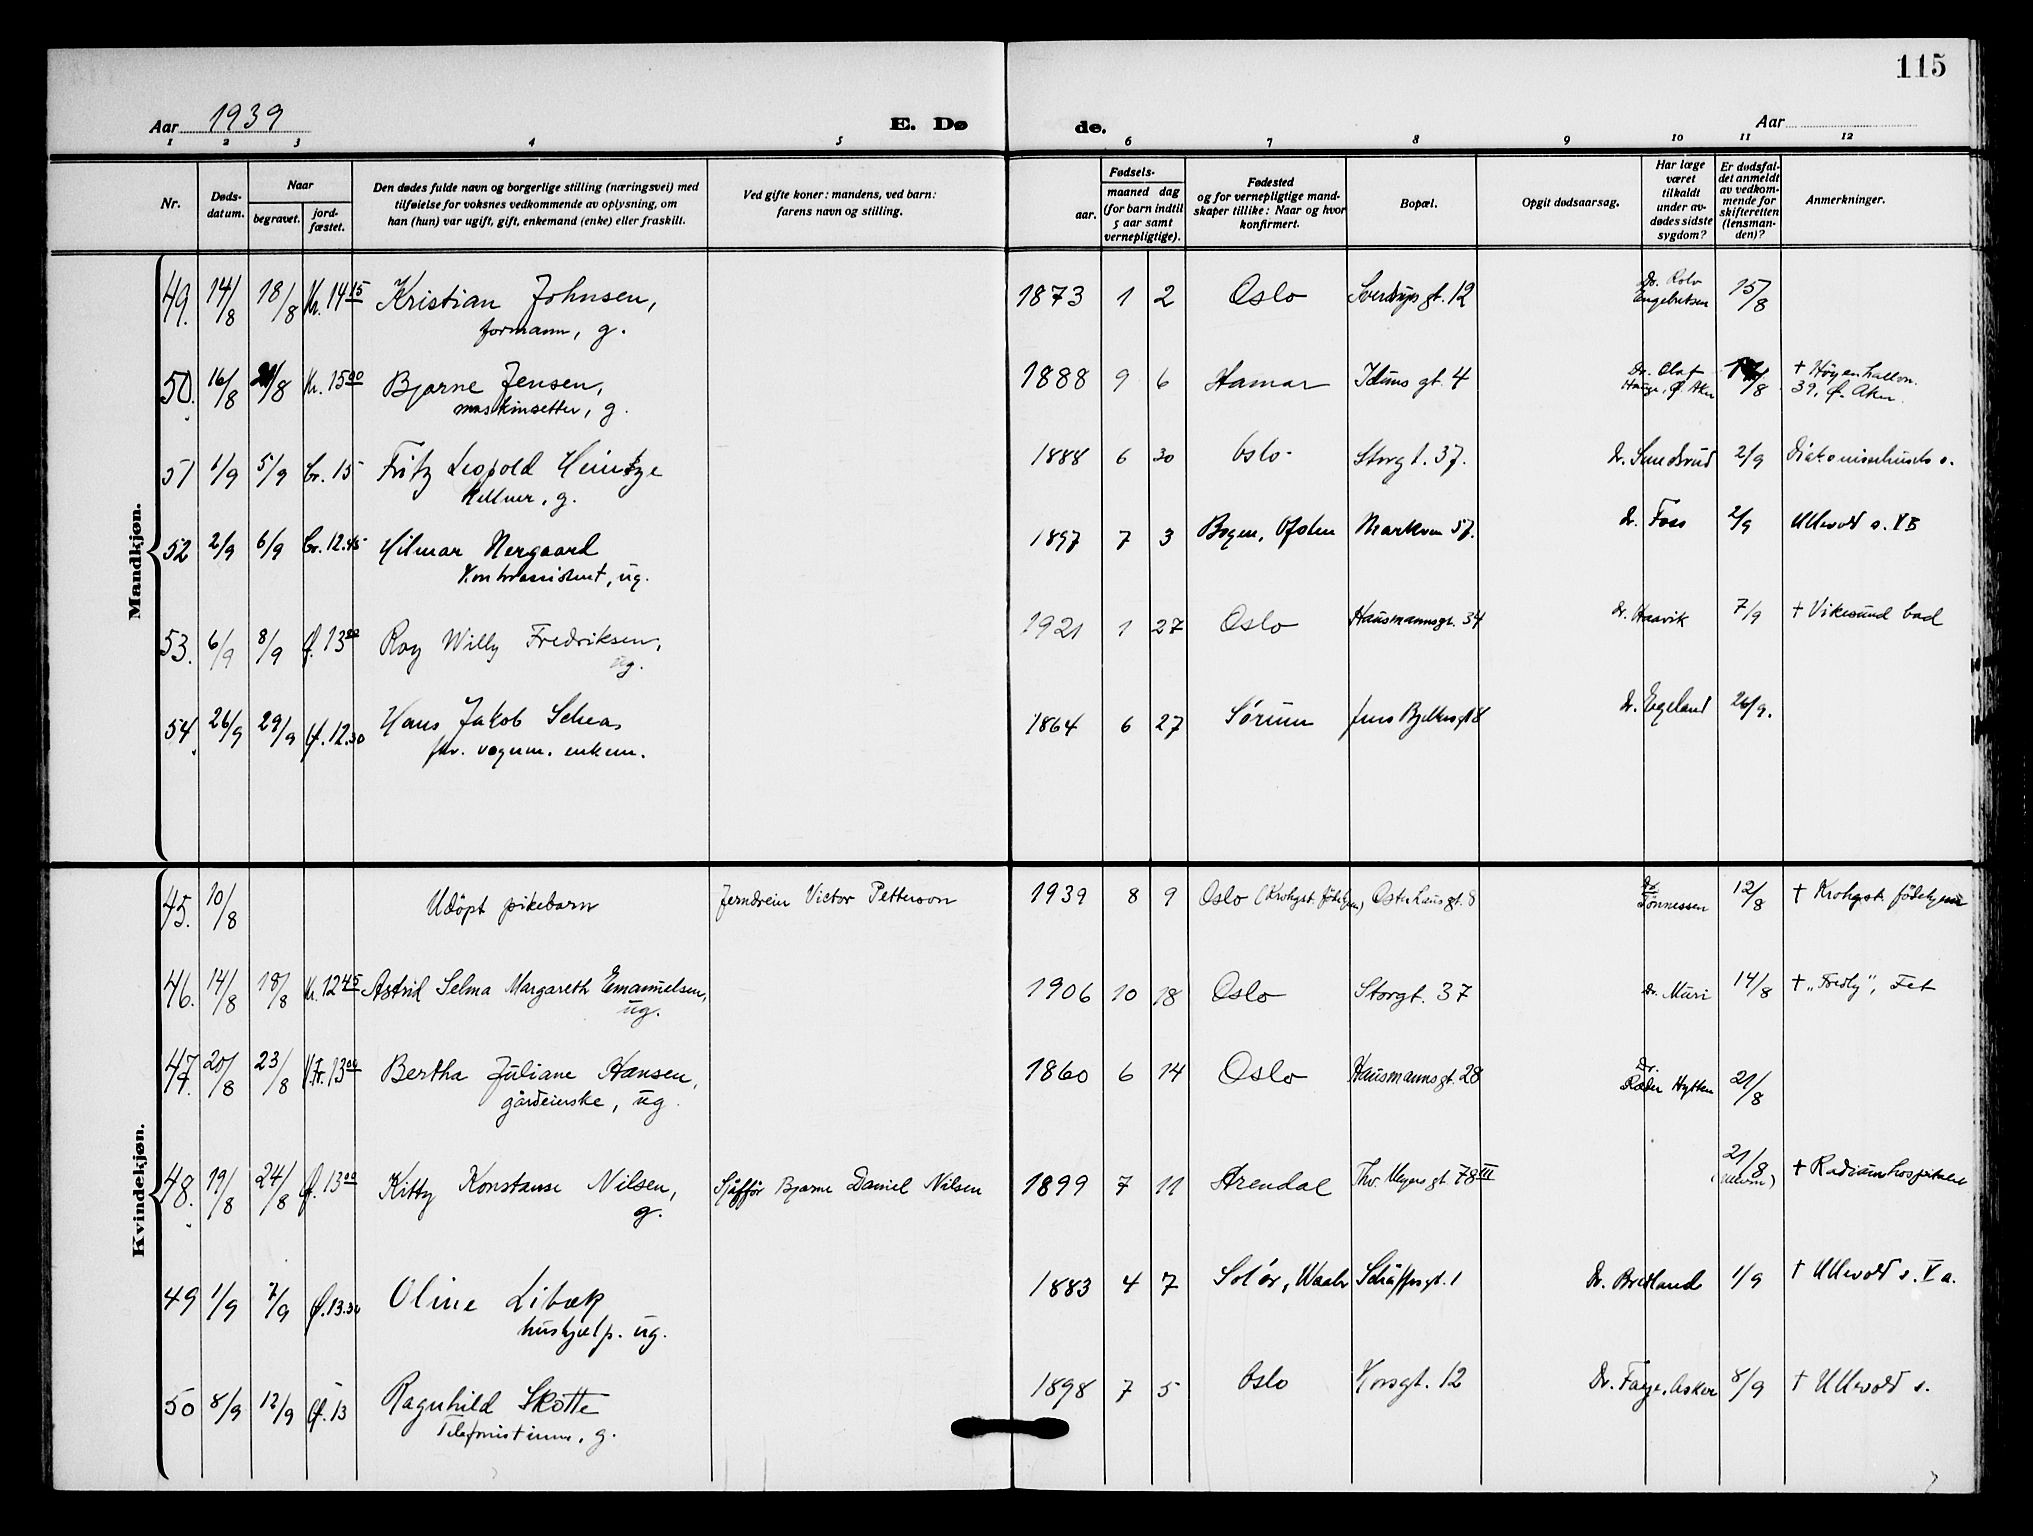 115
Aar 1939
E. Dø de.
Aar
1 2 3 4 5 6 7 8 9 10 11 12
Nr.
Døds-
datum.
Naar
begravet.
jord-
fæstet.
Den dødes fulde navn og borgerlige stilling (næringsvei) med
tilføielse for voksnes vedkommende av oplysning, om
han (hun) var ugift, gift, enkemand (enke) eller fraskilt.
Ved gifte koner: mandens, ved barn:
farens navn og stilling.
Fødsels-
aar.
maaned dag
(for barn indtil
5 aar samt
vernepligtige).
Fødested
og for vernepligtige mand-
skaper tillike: Naar og hvor
konfirmert.
Bopæl.
Opgit dødsaarsag.
Har læge
været
tilkaldt
under av-
dødes sidste
sygdom?
Er dødsfal-
det anmeldt
av vedkom-
mende for
skifteretten
(lensman-
den)?
Anmerkninger.
Mandkjøn.
49. 14/8 18/8 Kr. 14 15 Kristian Johnsen, 1873 1 2 Oslo Sverdrups gt. 12 Dr. Rolv 15/8
formann, g. Engebretsen
50. 16/8 /8 Kr. 15 00 Bjarne Jensen, 1888 9 6 Hamar Iduns gt. 4 Dr. Olaf /8 + Høyenhallvn.
maskinsetter, g. Hauge, Ø. Aker 39, Ø. Aker
51 1/9 5/9 Cr. 15 Fritz Leopold Heintze 1888 6 30 Oslo Storgt. 37. Dr. Sundsrud 2/9 Diakonissehusets s.
Kellner, g.
52 2/9 6/9 Cr. 12.45 Hilmar Nergaard 1897 7 3 Bogen, Ofoten Markvn 57. Dr. Foss 2/9 Ullevold s. V B
Kontorassistent, ug.
53. 6/9 8/9 Ø. 13 Roy Willy Fredriksen, 1921 1 27 Oslo Hausmannsgt. 34 Dr. Haavik 7/9 + Vikesund bad
ug.
54. 26/9 29/9 Ø. 12.30 Hans Jakob 1864 6 27 Sørum Jens Bjelkes gt 8 Dr. Egeland 26/9.
fhv. vognm. enkem.
Kvindekjøn.
45. 10/8 Udöpt pikebarn Jerndreier Victor Petterson 1939 8 9 Oslo (Krohgst. fødehjem) Osterhausgt. 8 Dr. 12/8 + Krohgst. fødehjem
Tønnessen
46. 14/8 18/8 Kr. 12 45 Astrid Selma Margareth Emanuelsen, 1906 10 18 Oslo Storgt. 37 Dr. Muri 14/8 + "Fredly", Fet
ug.
47. 20/8 23/8 13 00 Bertha Juliane Hansen, 1860 6 14 Oslo Hausmannsgt. 28 Dr. 21/8
gårdeierske, ug. Røder Hytten
48. 19/8 24/8 Ø. 13 00 Kitty Konstanse Nilsen, Sjåfför Bjarne Daniel Nilsen 1899 7 11 Arendal Thv. Meyers gt 78 III 21/8 + Radiumhospitalet
g.
49 1/9 7/9 Ø. 13.30 Oline Libæk 1883 4 7 Solør, Waaler Schäffersgt. 1 Dr. Bredland 1/9 + Ullevold s. V a.
hushjelp. ug.
50 8/9 12/9 Ø. 13 Ragnhild Skotte 1898 7 5 Oslo Korsgt. 12 Dr. Faye, Asker 8/9 + Ullevold s.
Telefonistinne, g.